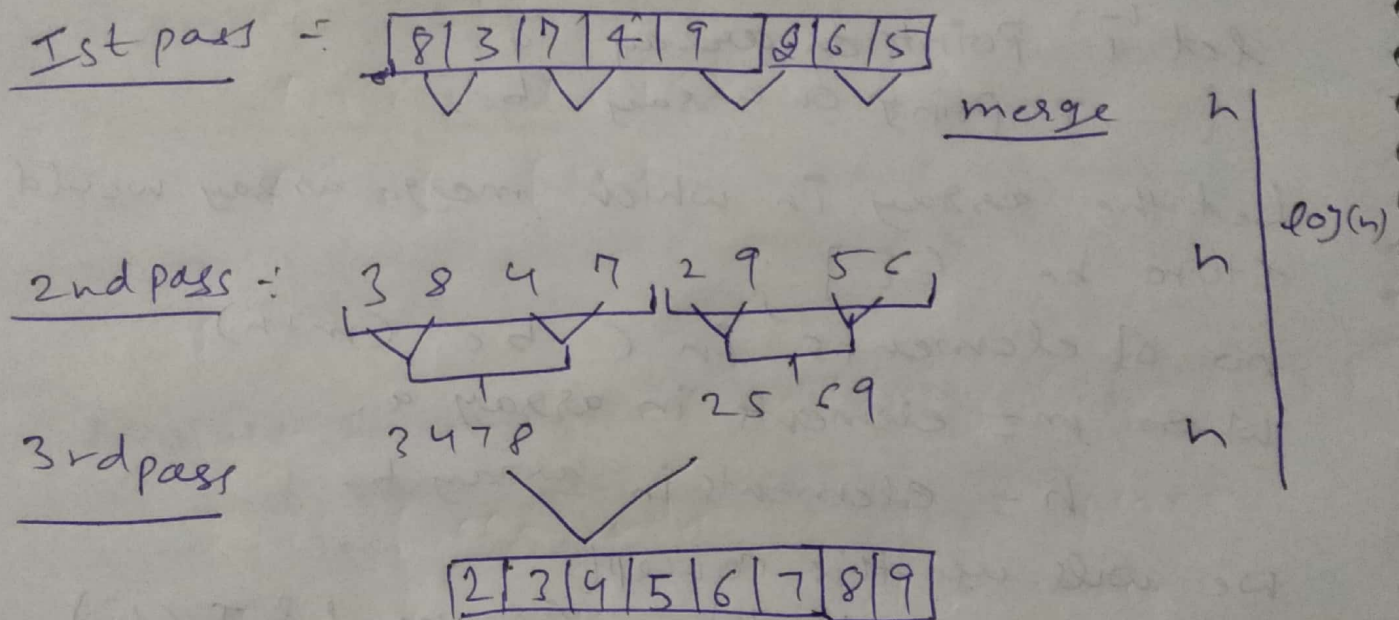 Ist pass : 8 3 7 4 9 2 6 5
merge n
log(n)
2nd pass : 3 8 4 7 2 9 5 6 n
3 4 7 8 2 5 6 9 n
3rd pass
2 3 4 5 6 7 8 9